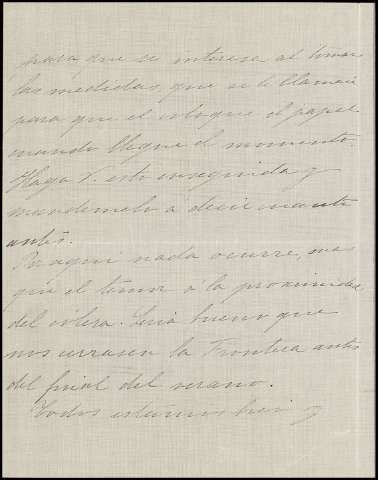 para que se interese al tomar
las medidas, que se le llamará
para que el coloque el papel
cuando llegue el momento.
Haga V. esto enseguida y
mandemelo a decir cuanto
antes.
Por aqui nada ocurre, mas
que el temor a la proximidad
del cólera. Será bueno que
nos cerrasen la Frontera antes
del final del verano.
Todos estamos bien y